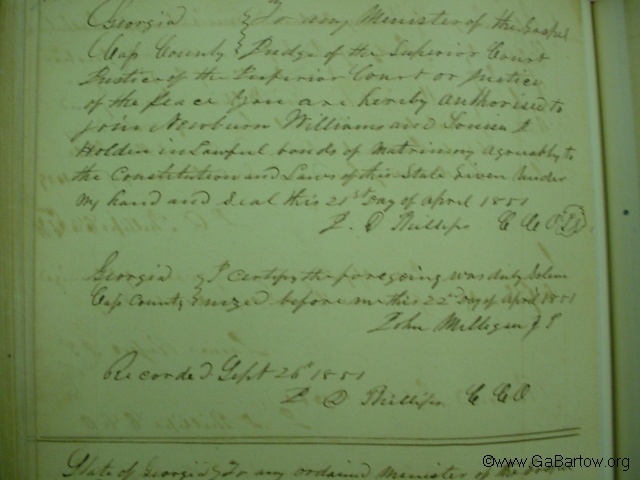 Georgia } To any Minister of the Gospel
Cass County } Judge of the Superior Court
Justice of the Inferior Court or Justice
of the Peace You are hereby authorised to
join Newburn Williams and Louisa
Holden in Lawful bonds of Matrimony agreeably to
the Constitution and Laws of this State Given under
my hand and Seal this 21st day of April 1851
L. D Phillips C C O
Georgia } I certify the foregoing was duly Solem
Cass County } nized before me this 22d day of April 1851
John Milligan J P
Recorded Sept 26th 1851
L D Phillips C C O
State of Georgia } To any ordained Minister of the
©www.GaBartow.org